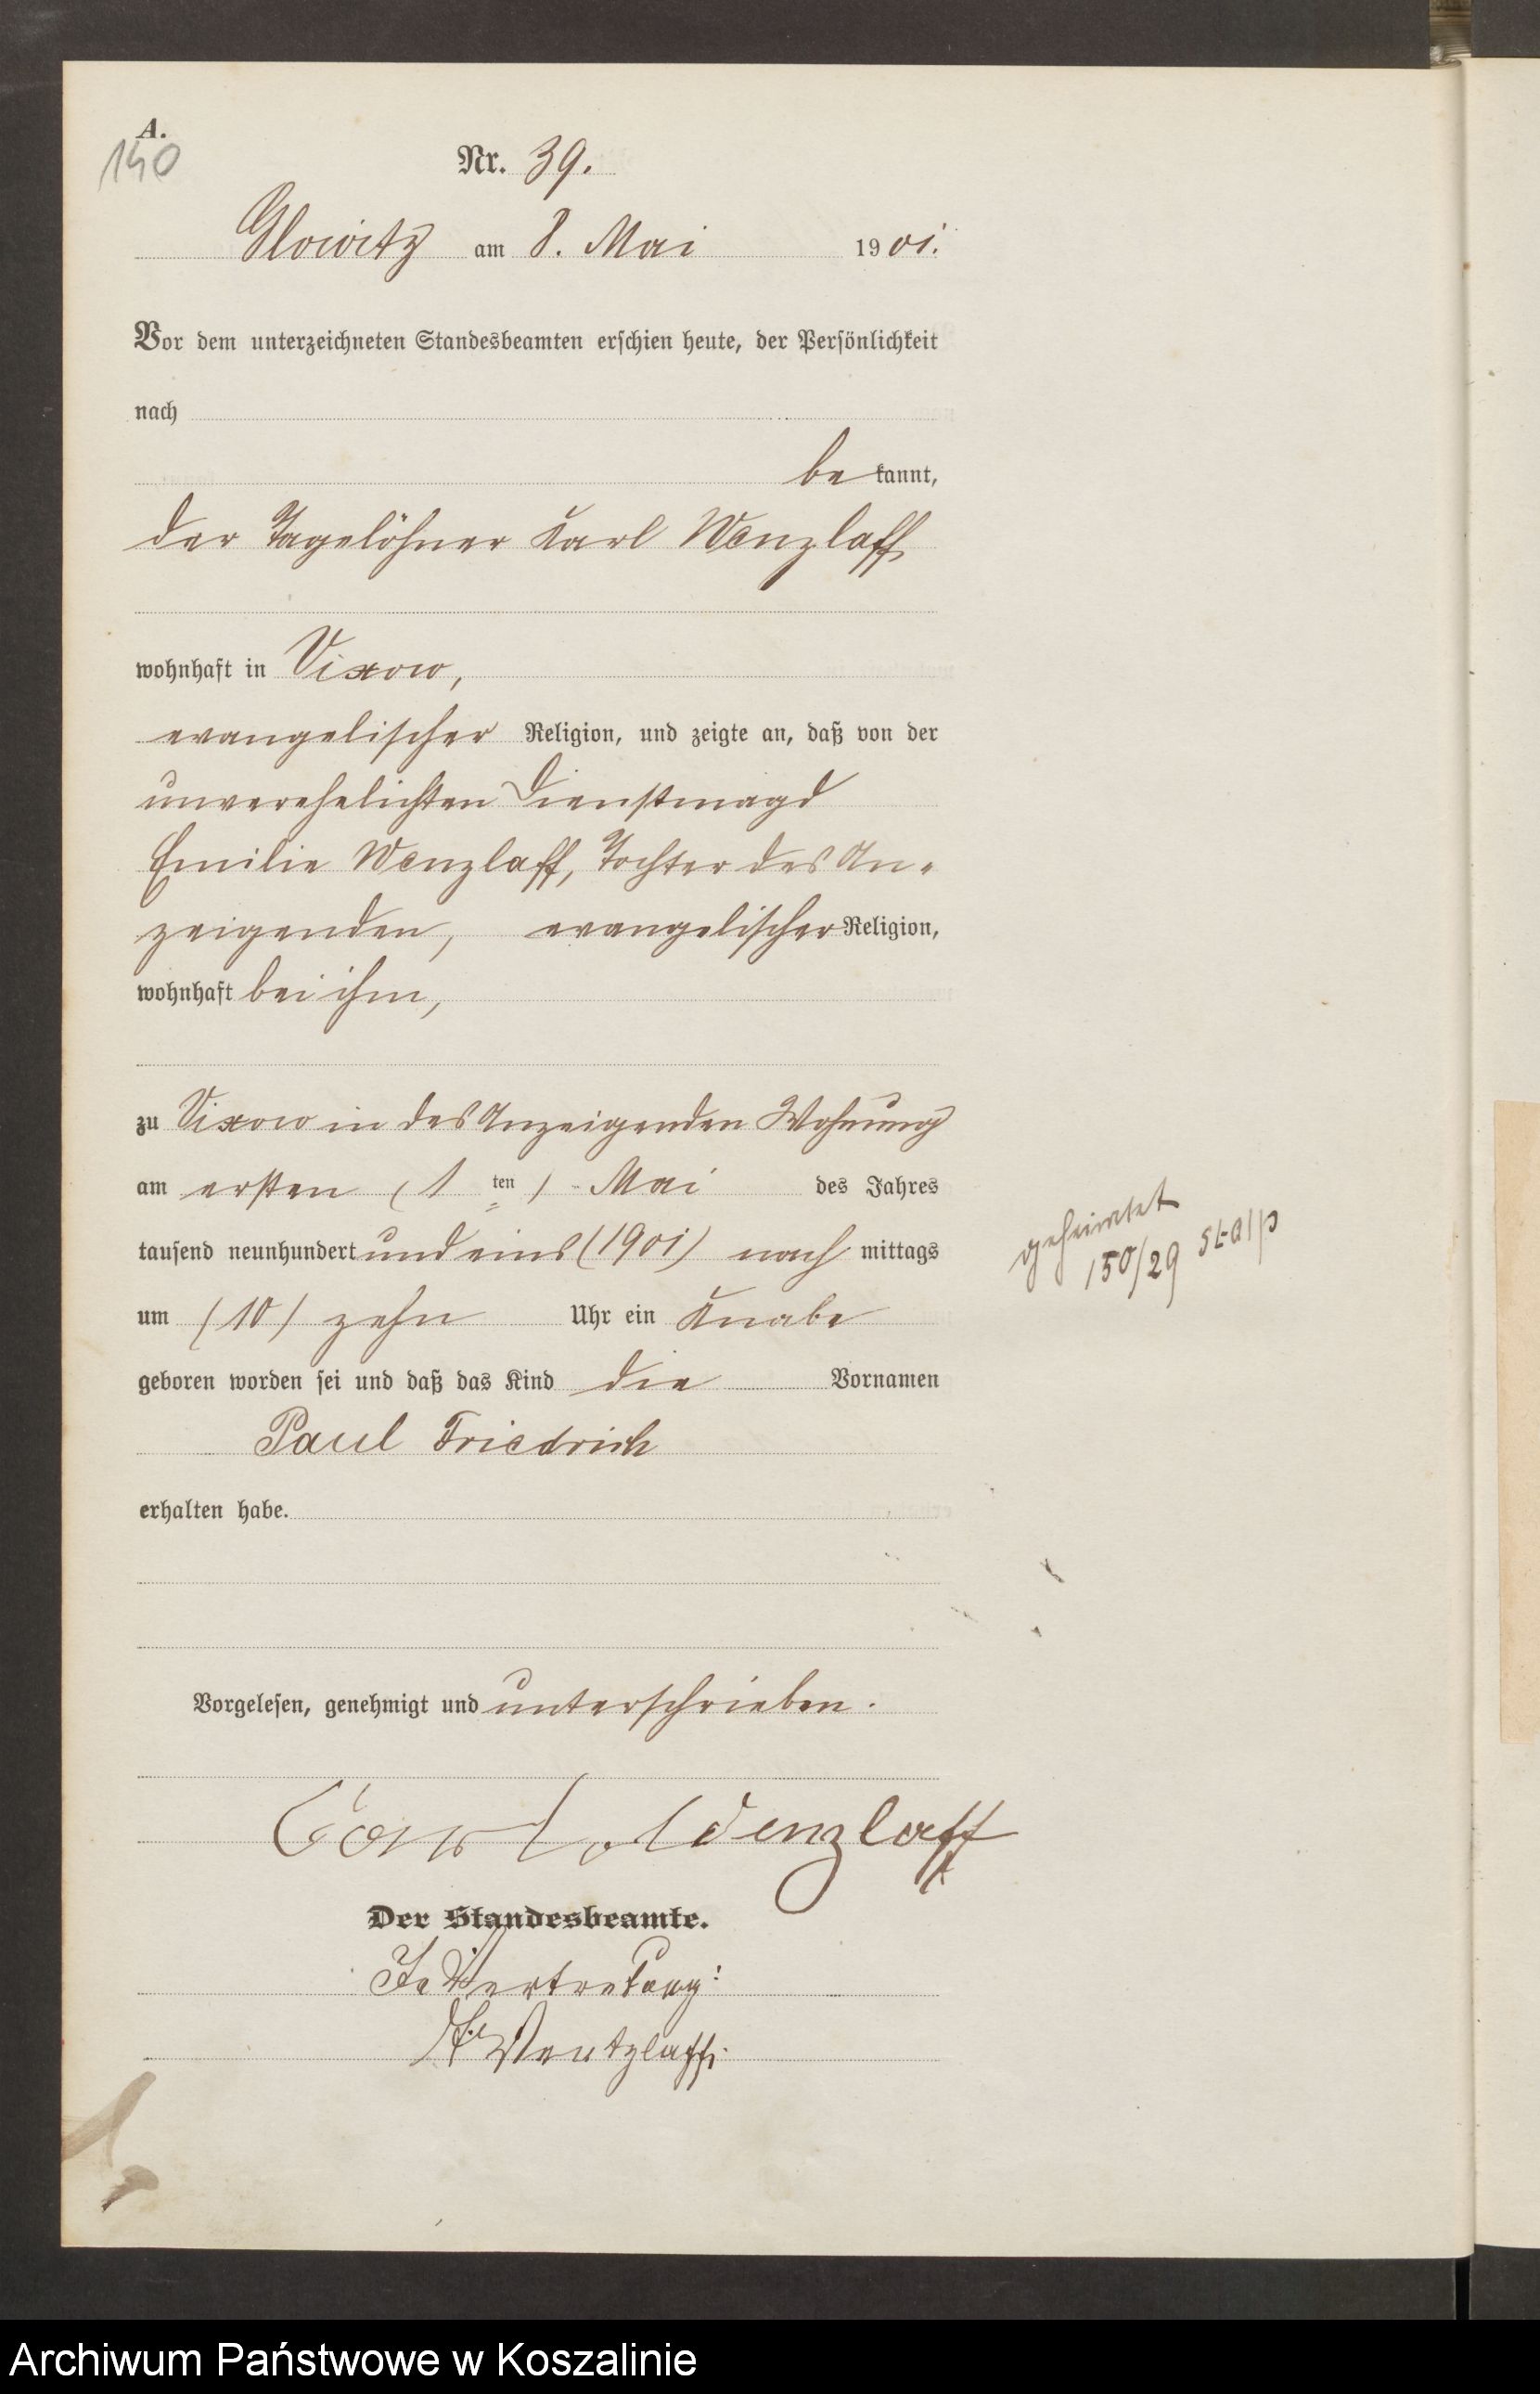 A.
140
Nr. 39.
Glowitz am 8. Mai 1901.
Vor dem unterzeichneten Standesbeamten erschien heute, der Persönlichkeit
nach
be kannt,
der Tagelöhner Karl Wenzlaff
wohnhaft in Vixow,
evangelischer Religion, und zeigte an, daß von der
unverehelichten Dienstmagd
Emilie Wenzlaff, Tochter des An-
zeigenden, evangelischer Religion,
wohnhaft bei ihm,
zu Vixow in des Anzeigenden Wohnung
am ersten (1 ten) Mai des Jahres
tausend neunhundert und eins (1901) nach mittags
um (10) zehn Uhr ein Knabe
geboren worden sei und daß das Kind die Vornamen
Paul Friedrich
erhalten habe.
geheiratet
150/29 Stolp
Vorgelesen, genehmigt und unterschrieben.
Carl Wenzlaff
Der Standesbeamte.
In Vertretung:
Wentzlaff.
Archiwum Państwowe w Koszalinie